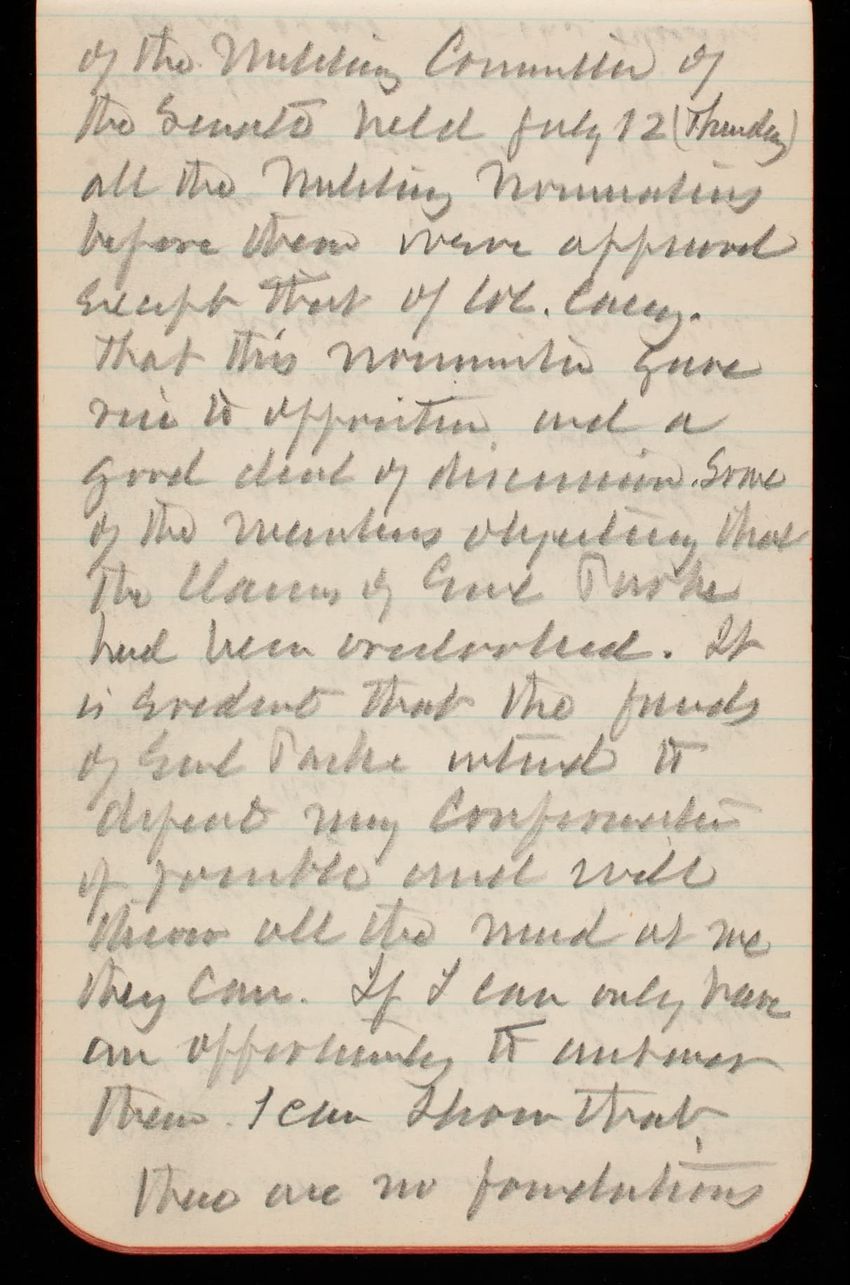 of the Military Committee of
the Senate held July 12 (Thursday)
all the Military nominations
before them were approved
except that of Col. Casey.
That this nomination gave
rise to opposition and a
good deal of discussion. Some
of the members objecting that
the claims of Genl Parke
had been overlooked. It
is evident that the friends
of Genl Parke intend to
defeat my confirmation
if possible and will
throw all the mud at me
they can. If I can only have
an opportunity to answer
them. I can show that
there are no foundations